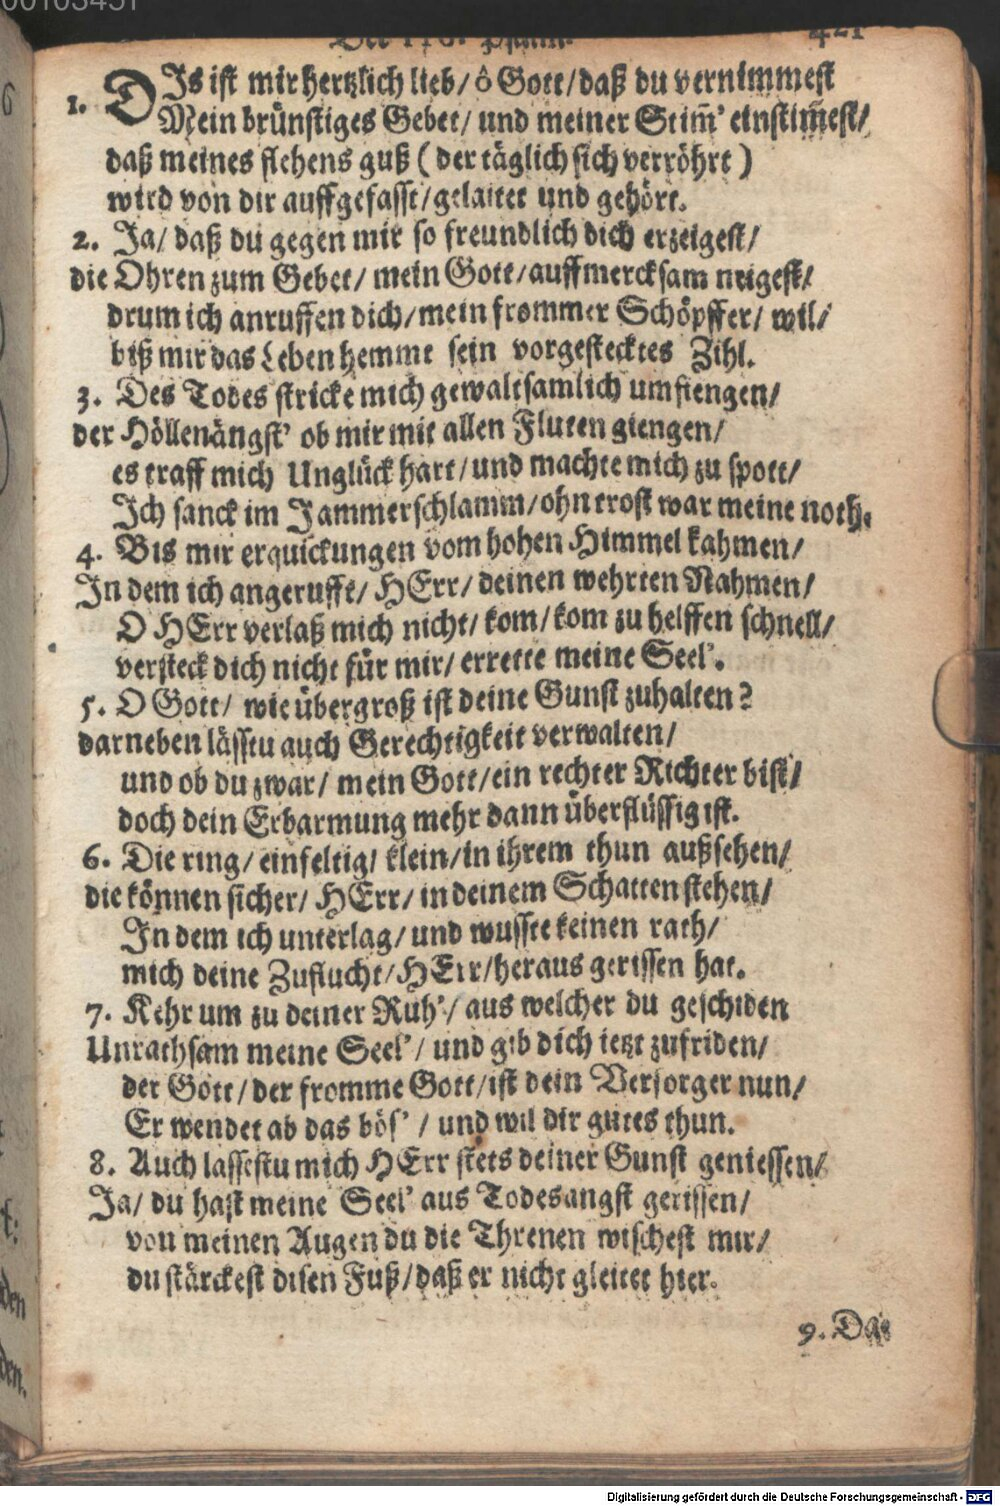 00103451
Der 116. Psalm. 421
1. DIs ist mir hertzlich lieb/ ô Gott/ daß du vernimmest
Mein brünstiges Gebet/ und meiner Stim̅' einstim̅est/
daß meines flehens guß (der täglich sich verröhrt)
wird von dir auffgefasst/ gelaitet und gehört.
2. Ja/ daß du gegen mir so freundlich dich erzeigest/
die Ohren zum Gebet/ mein Gott/ auffmercksam neigest/
drum ich anruffen dich/ mein frommer Schöpffer/ wil/
biß mir das Leben hemmt sein vorgestecktes Zihl.
3. Des Todes stricke mich gewaltsamlich umfiengen/
der Höllenängst' ob mir mit allen Fluten giengen/
es traff mich Unglück hart/ und machte mich zu spott/
Ich sanck im Jammerschlamm/ ohn trost war meine noth.
4. Bis mir erquickungen vom hohen Himmel kahmen/
In dem ich angerufft/ HErr/ deinen wehrten Nahmen/
O HErr verlaß mich nicht/ kom/ kom zu helffen schnell/
versteck dich nicht für mir/ errette meine Seel'.
5. O Gott/ wie übergroß ist deine Gunst zuhalten?
darneben lässtu auch Gerechtigkeit verwalten/
und ob du zwar/ mein Gott/ ein rechter Richter bist/
doch dein Erbarmung mehr dann überflüssig ist.
6. Die ring/ einfeltig/ klein/ in ihrem thun außsehen/
die können sicher/ HErr/ in deinem Schatten stehen/
In dem ich unterlag/ und wusste keinen rath/
mich deine Zuflucht/ HErr/ heraus gerissen hat.
7. Kehr um zu deiner Ruh'/ aus welcher du geschiden
Unrathsam meine Seel'/ und gib dich ietzt zufriden/
der Gott/ der fromme Gott/ ist dein Versorger nun/
Er wendet ab das bös'/ und wil dir gutes thun.
8. Auch lassestu mich HErr stets deiner Gunst geniessen/
Ja/ du hast meine Seel' aus Todesangst gerissen/
von meinen Augen du die Threnen wischest mir/
du stärckest disen Fuß/ daß er nicht gleitet hier.
9. Das
Digitalisierung gefördert durch die Deutsche Forschungsgemeinschaft - DFG